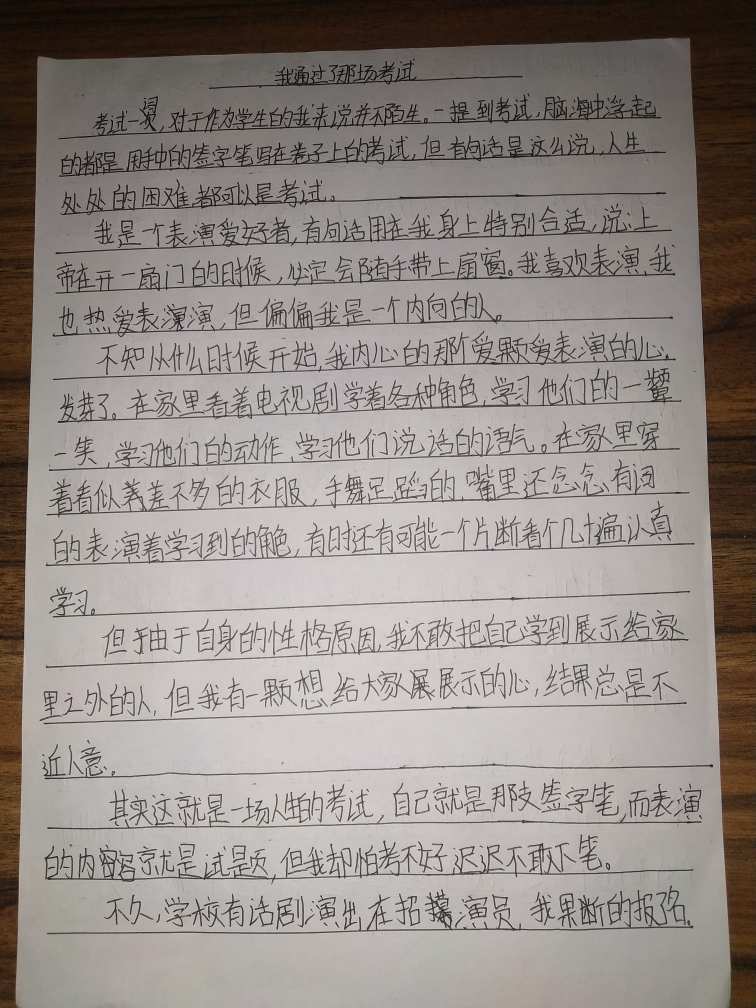 我通过了那场考试
考试一词,对于作为学生的我来说并不陌生。一提到考试,脑海中浮起
的都是用手中的签字笔写在卷子上的考试,但有句话是这么说,人生
处处的困难都可以是考试。
我是一个表演爱好者,有句话用在我身上特别合适,说:上
帝在开一扇门的时候,必定会随手带上扇窗。我喜欢表演,我
也热爱表演,但偏偏我是一个内向的人。
不知从什么时候开始,我内心的那个爱颗爱表演的心,
发芽了。在家里看着电视剧学着各种角色,学习他们的一颦
一笑,学习他们的动作,学习他们说话的语气。在家里穿
着看似差不多的衣服,手舞足蹈的,嘴里还念念有词
的表演着学习到的角色,有时还有可能一个片断看个几十遍认真
学习。
但于由于自身的性格原因,我不敢把自己学到展示给家
里之外的人,但我有一颗想给大家展示的心,结果总是不
近人意。
其实这就是一场人生的考试,自己就是那支签字笔,而表演
的内容就是试题页,但我却怕考不好迟迟不敢下笔。
不久,学校有话剧演出,在招募演员,我果断的报了名。